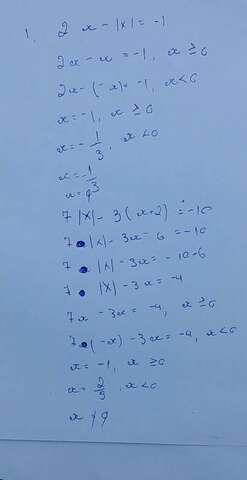 1. 2 x - |x| = -1
2x - x = -1, x ≥ 0
2x - (-x) = -1, x < 0
x = -1, x ≥ 0
x = -1/3, x < 0
x = -1/3
7 |x| - 3(x+2) = -10
7 • |x| - 3x - 6 = -10
7 • |x| - 3x = -10+6
7 • |x| - 3x = -4
7x - 3x = -4, x ≥ 0
7 • (-x) - 3x = -4, x < 0
x = -1, x ≥ 0
x = 2/5, x < 0